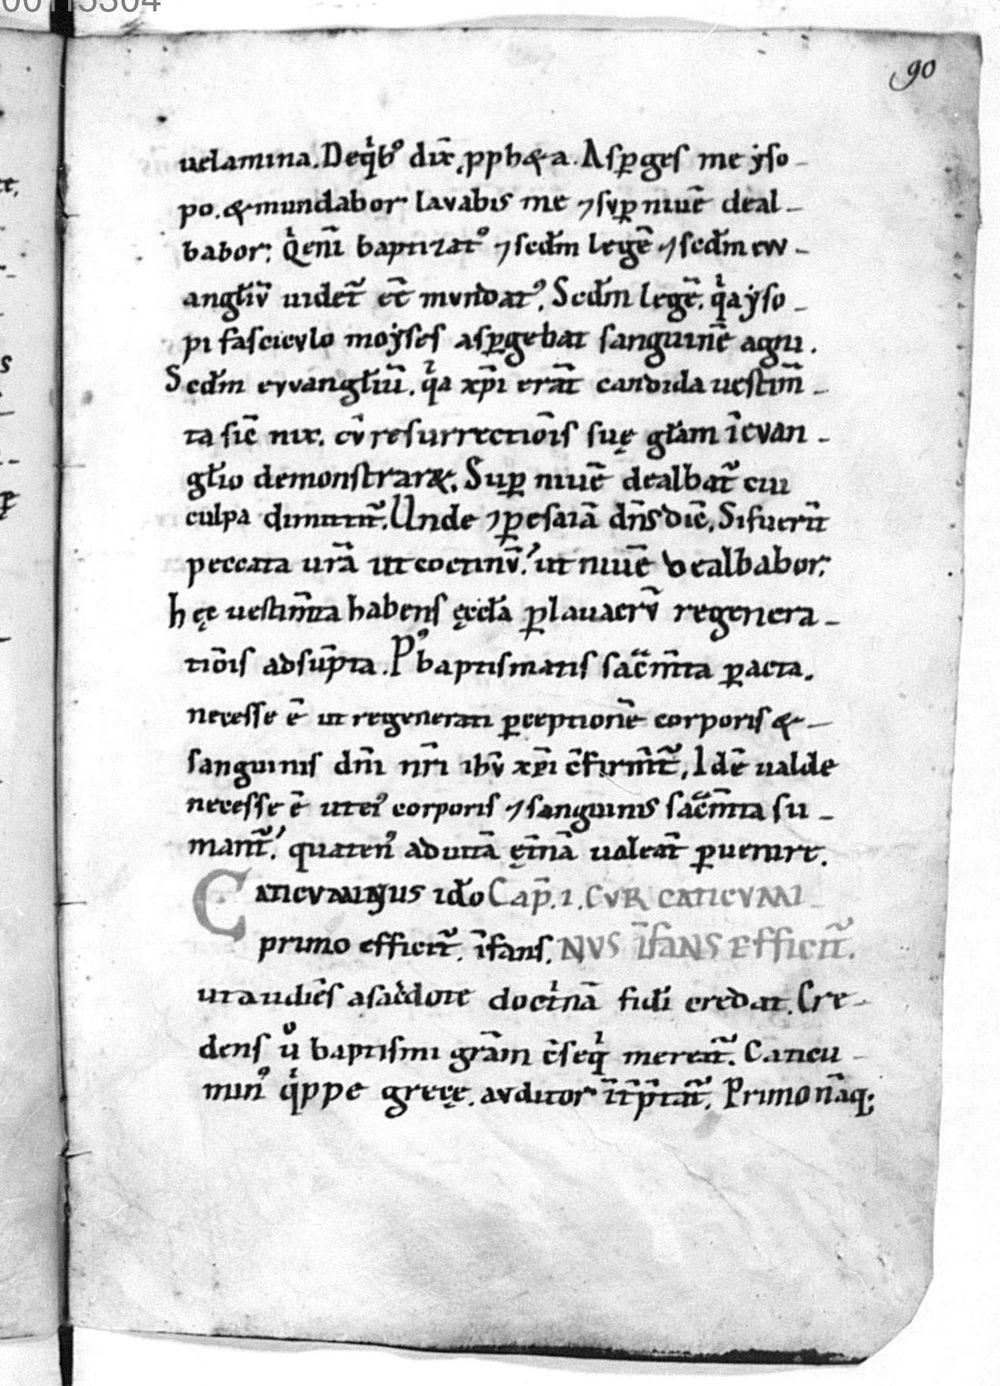 90
uelamina. Deq̍bꝰ dix̄ ꝓph&a. Asꝑges me ẏso-
po. & mundabor lavabis me ⁊ svꝑ niuē deal-
babor: Q̍ enī baptizatꝰ ⁊ scdm̄ legē ⁊ scdm̄ ew-
angłiv̄ uidet᷑ eē mvndatꝰ. Scdm̄ legē. q̍a ẏso-
pi fascicvlo moẏses asꝑgebat sanguinē agni.
Scdm̄ eyvangłiū. q̍a xp̄i erāt candida uestim̄-
ta sic̄ nix. cv̄ resurrectiōis suę głam ī evan-
głio demonstrar&. Suꝑ niuē dealbat᷑ cui
culpa dimittit᷑. Unde ⁊ ꝑ esaiā dn̄s dic̄. Si fuerīt
peccata urā ut coctinv̄. ut niuē dealbabor:
hęę uestim̄ta habens ęccła ꝑ lauacrv̄ regenera-
tiōis adsūpta. Pꝰ baptismatis sac̄m̄ta ꝑacta.
necesse ē ut regenerati ꝑceptionē corporis &-
sanguinis dn̄i nr̄i ihv̄ xp̄i c̄firm̄t᷑, Idē ualde
necesse ē ut eiꝰ corporis ⁊ sanguinis sac̄m̄ta su-
mant᷑. quatenꝰ ad uitā ęt̄nā ualeāt ꝑuenire.
Caticvminus idō Cap̄. 1. CVR CATICVMI-
primo efficit᷑. īfans. NVS īfANS Efficit᷑.
ut audiēs a sac̄dote doct̍nā fidi credat. Cre-
dens u̇ baptismi grām c̄seq̍ mereat᷑. Caticu-
minꝰ q̍ppe gręcę. avditor īt̄p̄tat᷑. Primo nāq;